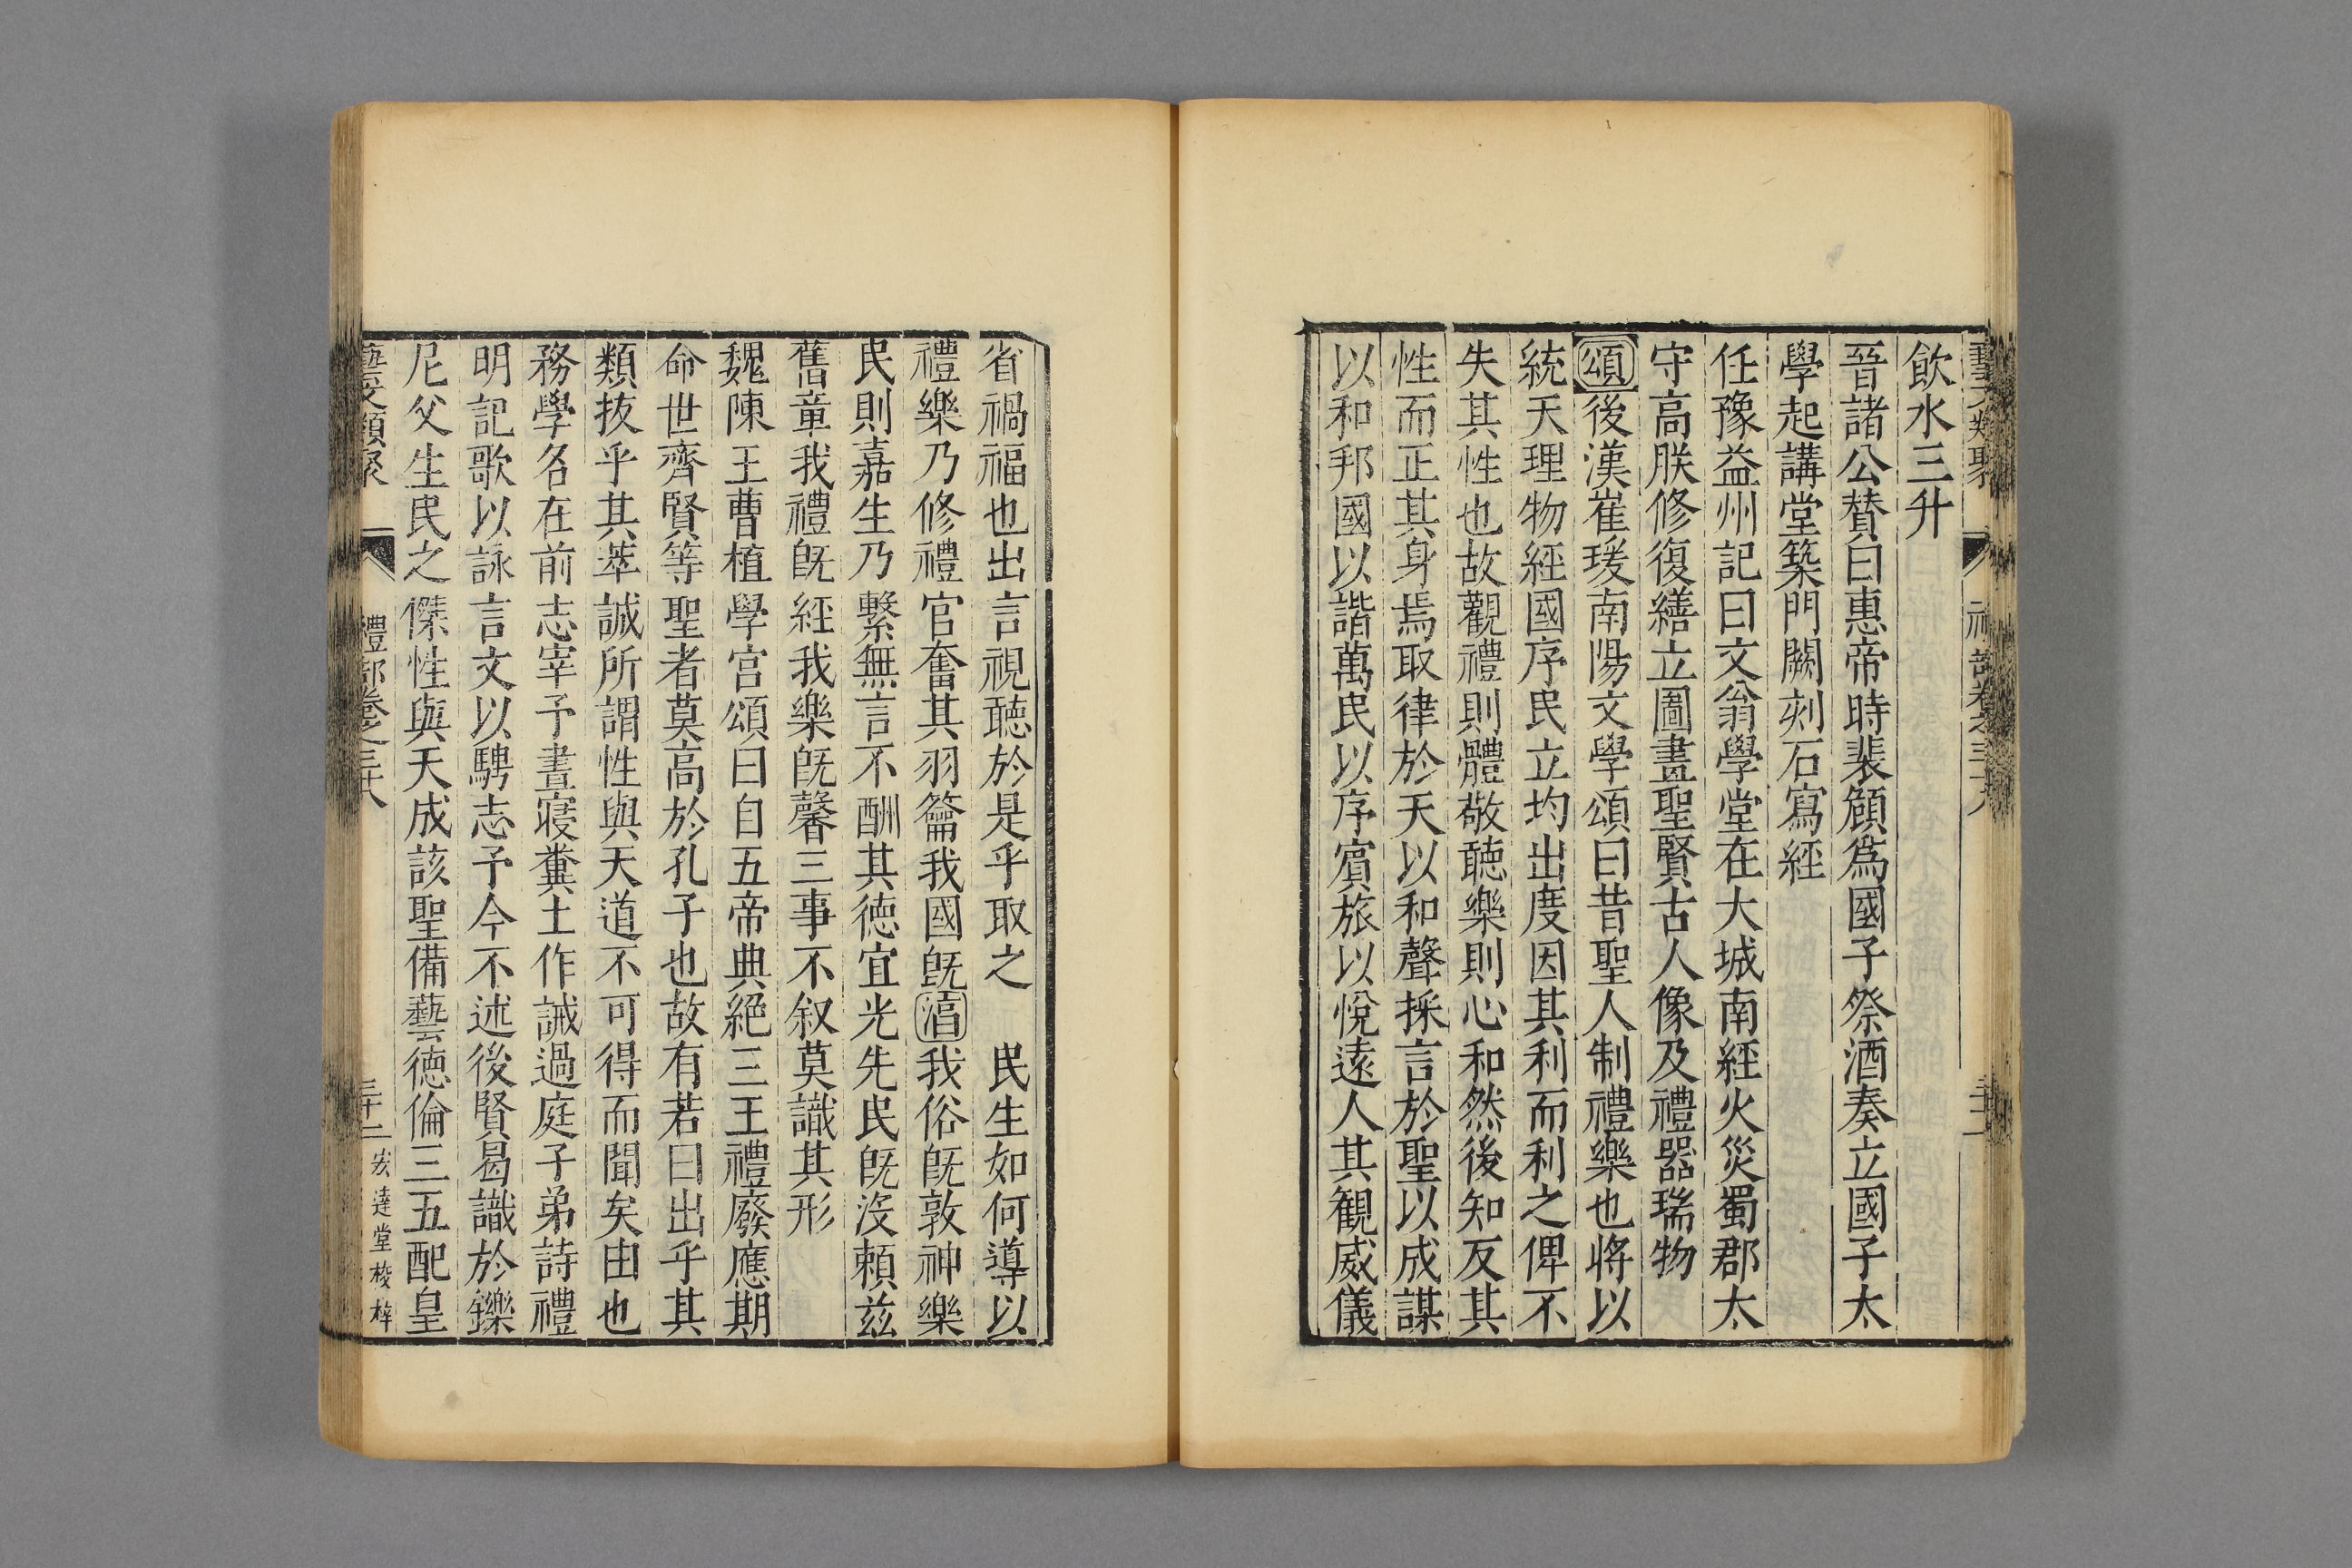 飲水三升
晉諸公賛曰惠帝時裴頠爲國子祭酒奏立國子太
學起講堂築門闕刻石寫經
任豫益州記曰文翁學堂在大城南經火災蜀郡太
守高朕修復繕立圖畫聖賢古人像及禮器瑞物
頌後漢崔瑗南陽文學頌曰昔聖人制禮樂也將以
統天理物經國序民立均出度因其利而利之俾不
失其性也故觀禮則體敬聽樂則心和然後知反其
性而正其身焉取律於天以和聲採言於聖以成謀
以和邦國以諧萬民以序賓旅以悅遠人其觀威儀
省禍福也出言視聽於是乎取之　民生如何導以
禮樂乃修禮官奮其羽籥我國旣湻我俗旣敦神樂
民則嘉生乃繫無言不酬其德宜光先民旣沒賴兹
舊章我禮旣經我樂旣馨三事不叙莫識其形
魏陳王曹植學宫頌曰自五帝典絕三王禮廢應期
命世齊賢等聖者莫高於孔子也故有若曰出乎其
類抜乎其萃誠所謂性與天道不可得而聞矣由也
務學名在前志宰予晝寢糞土作誡過庭子弟詩禮
明記歌以詠言文以騁志予今不述後賢曷識於鑠
尼父生民之傑性與天成該聖備藝德倫三五配皇
藝文類聚　禮部卷之三十八　三十二　宏達堂校梓